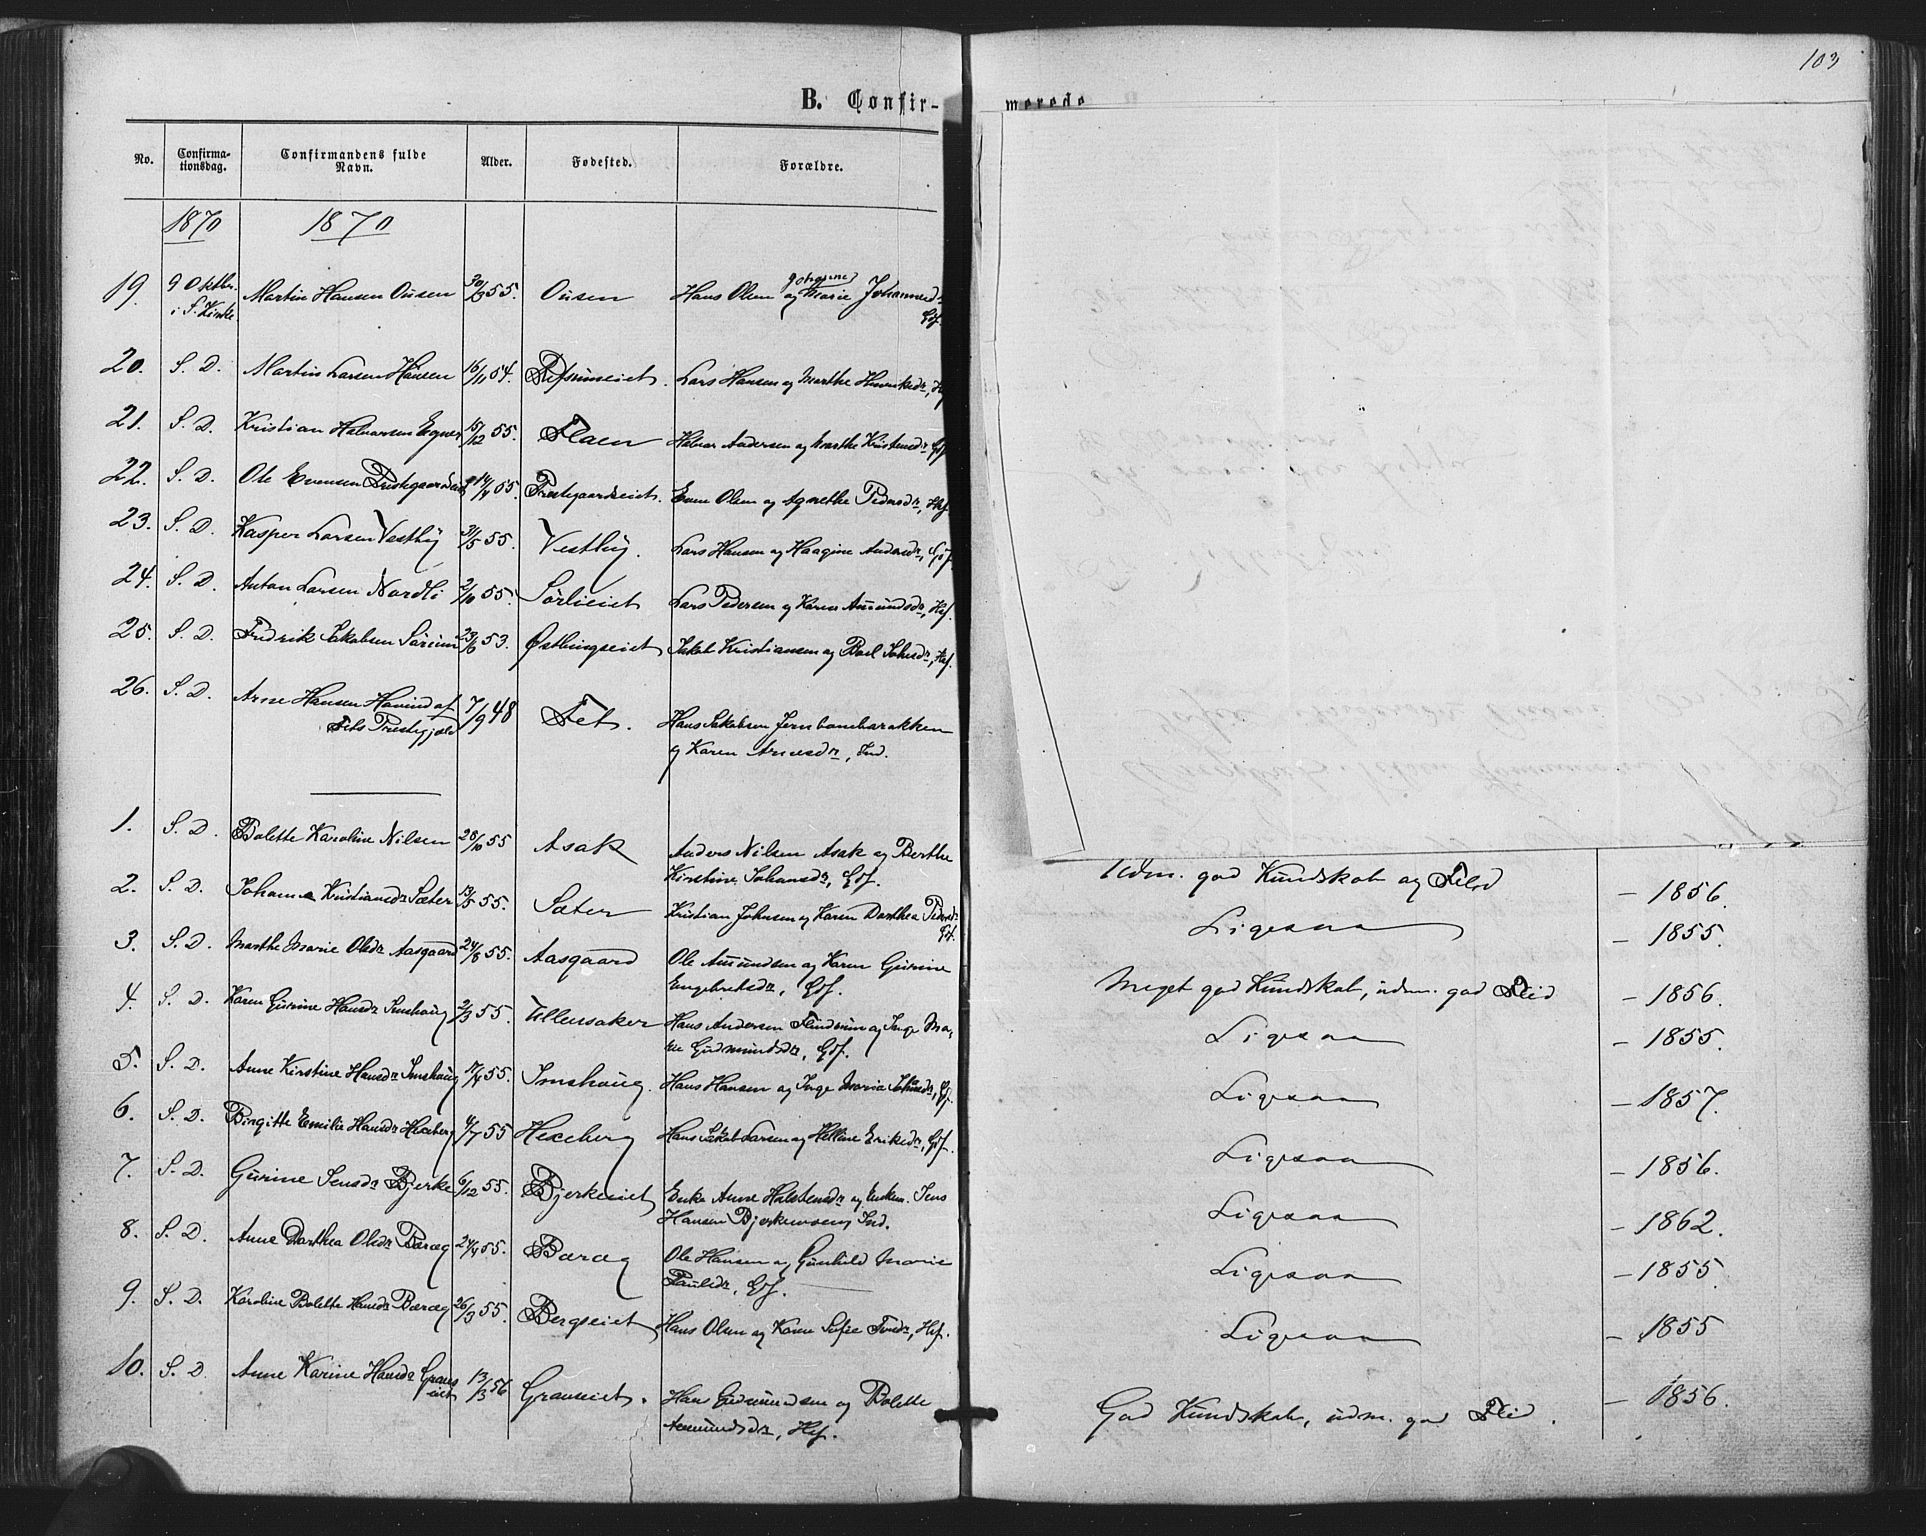 103
B. Confir-
merede
No. Confirma-tionsdag. Confirmandens fulde Navn. Alder. Fødested. Forældre.
1870 1870
19. 9 Oktbr. i S. Kirke Martin Hansen Ousen 55. Ousen Hans Olsen og Marie Johannesdr Gdf.
20. S. D. Martin Larsen Hansen 16/11 54. Lars Hansen og Marthe Henriksdr, Hf
21. S. D. Kristian Halvorsen Egner 15/12 55. Flaen Halvor Andersen og Marthe Kristensdr Gdf
22. S. D. Ole Evensen 55. Prestegaardseiet. Even Olsen og Agnethe Pedersdr, Hsf.
23. S. D. Kasper Larsen Vestby 31/5 55. Vestby. Lars Hansen og Haagine Andersdr, Gdf.
24. S. D. Anton Larsen Nordli 2/10 55. Sörlieiet Lars Pedersen og Karen Amundsdr, Hsf.
25. S. D. Fredrik Jakobsen Sörum 53. Østbyngseiet Jakob Kristiansen og Boel Johsdr, Hsf.
26. S. D. Arne Hansen Havind af
Fets Prestegjæld 7/9 48 Fet. Hans Jakobsen Jernbanebarakken
og Karen Arnesdr, Ind.
1. S. D. Bolette Karoline Nilsen 28/10 55 Asak Anders Nilsen Asak og Berthe
Kirstine Johansdr, Gdf.
2. S. D. Johanne Kristiansdr Sæter 13/5 55. Sæter Kristian Johnsen og Karen Dorthea Pedersdr
Gdf.
3. S. D. Marthe Marie Olsdr Aasgaard 24/8 55. Aasgaard Ole Amundsen og Karen Gurine
Engebretsdr, Gdf.
4. S. D. Karen Gurine Hansdr Imshaug 2/3 55. Ullensaker Hans Andersen og Inge Ma-
rie Gudmundsdr, Gdf.
5. S. D. Anne Kirstine Hansdr Imshaug 17/4 55. Imshaug. Hans Hansen og Inge Maria Johnsdr, Gdf.
6. S. D. Birgitte Emilie Hansdr Hexeberg 4/7 55 Hexeberg Hans Jakob Larsen og Helline Eriksdr, Gdf.
7. S. D. Gurine Jensdr Bjerke 6/12 55. Bjerkeeiet Enke Anne Halstensdr og Enkem. Jens
Hansen Bjerkemoens Ind.
8. S. D. Anne Dorthea Olsdr Baräg 24/4 55. Baräg Ole Hansen og Gunhild Marie
Paulsdr, Gdf.
9. S. D. Karoline Bolette Hansdr Baräg 26/3 55. Bergseiet Hans Olsen og Karen Sofie Tordr, Hsf.
10. S. D. Anne Karine Hansdr Grans
eiet 13/3 56 Granseiet. Hans Gudmundsen og Bolette
Amundsdr, Hsf.
Udm. god Kundskab og Flid – 1856.
Ligesaa – 1855.
Meget god Kundskab, udm. god Flid – 1856.
Ligesaa – 1855.
Ligesaa – 1857.
Ligesaa – 1856.
Ligesaa – 1862.
Ligesaa – 1855.
Ligesaa – 1855
God Kundskab, udm. god Flid. – 1856.